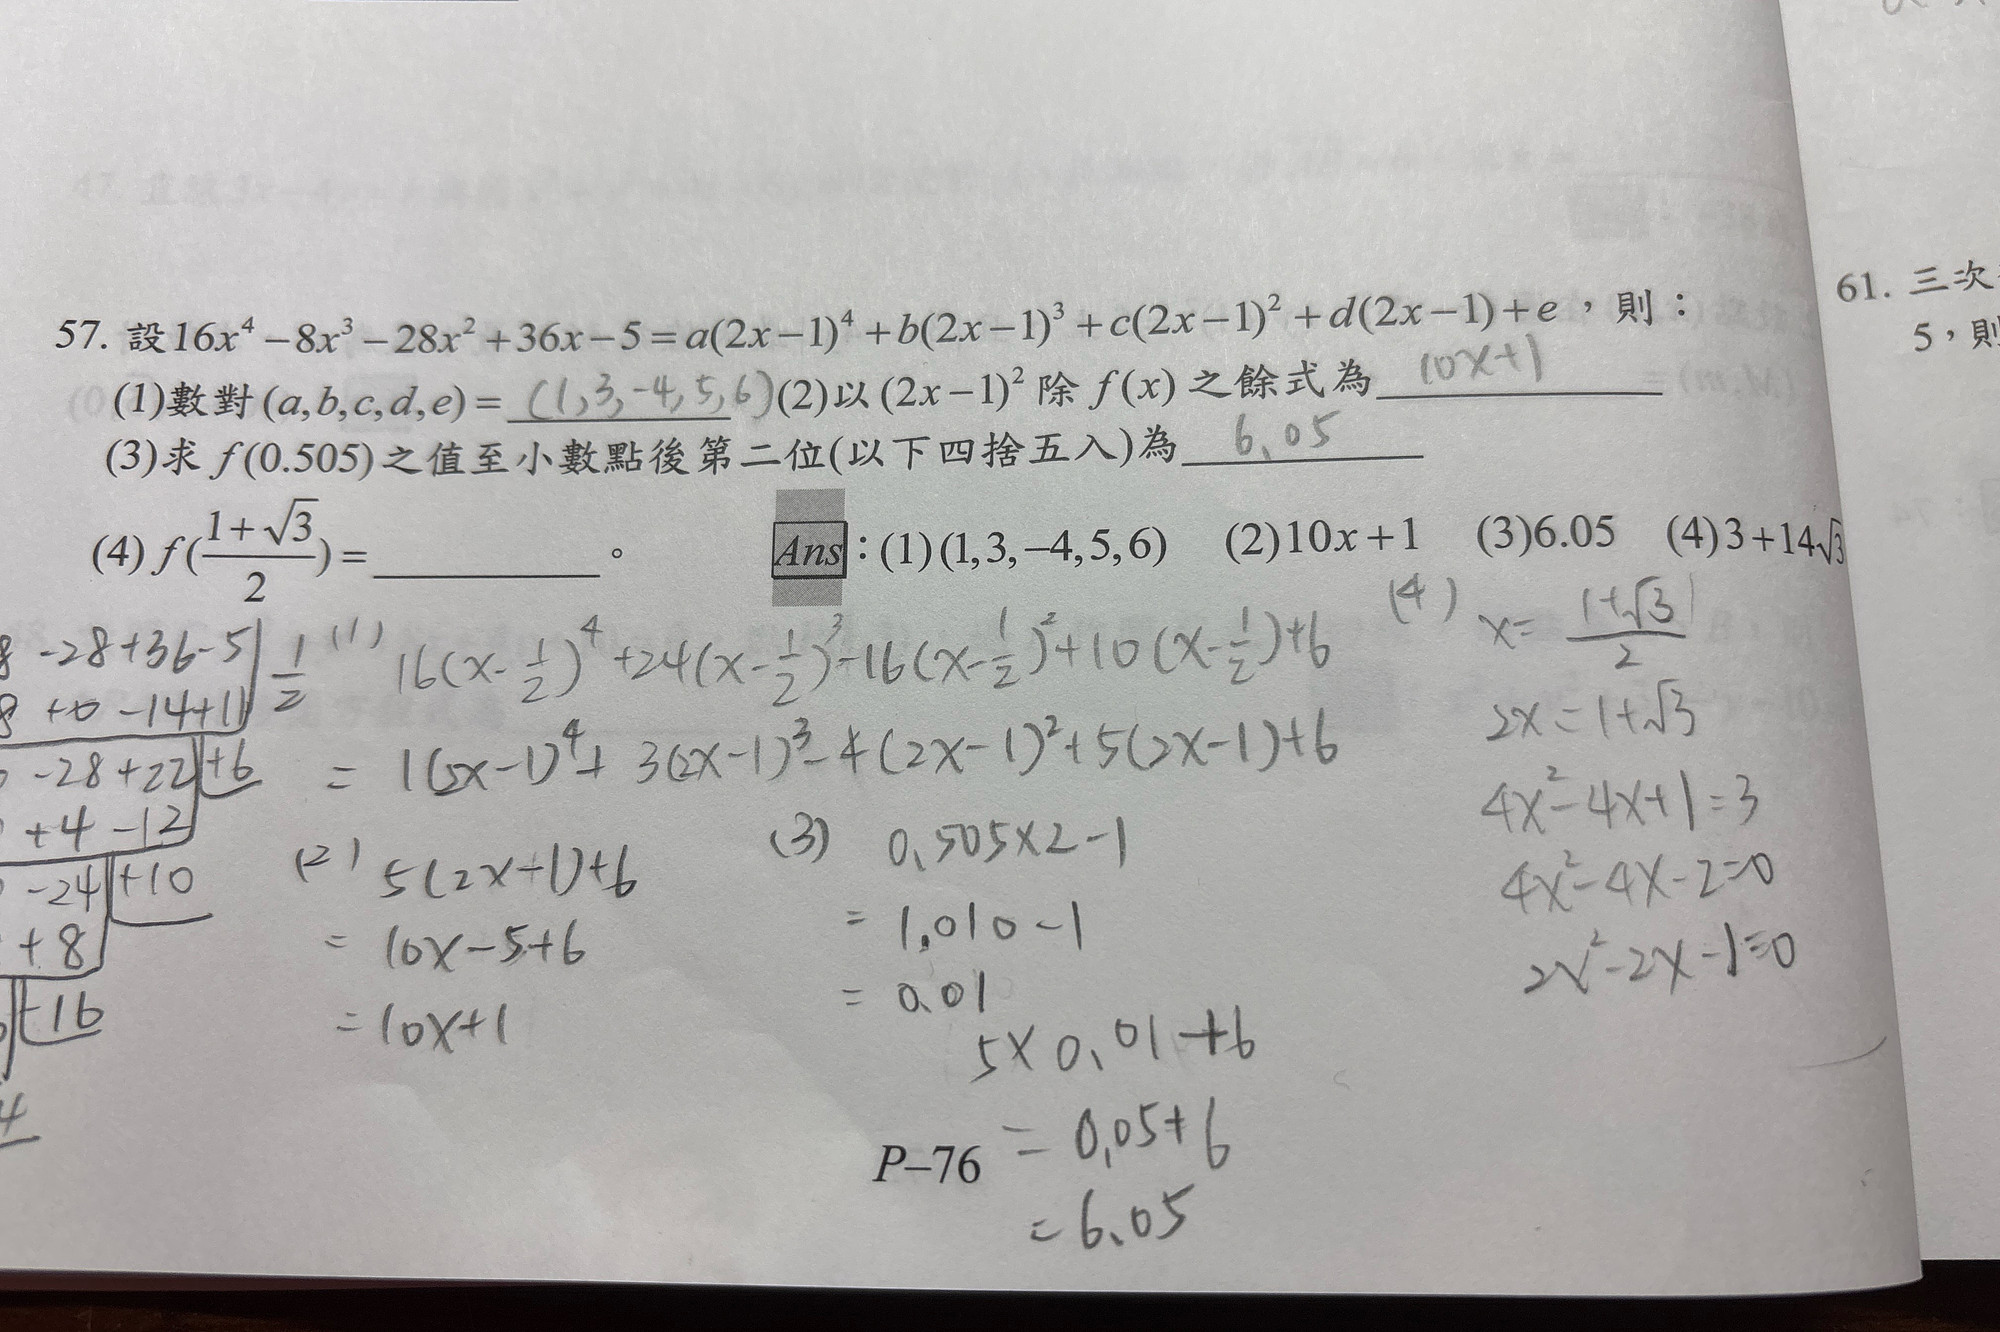 57. 設16x⁴−8x³−28x²+36x−5=a(2x−1)⁴+b(2x−1)³+c(2x−1)²+d(2x−1)+e，則：
(1)數對(a,b,c,d,e)= (1,3,-4,5,6) (2)以(2x−1)²除f(x)之餘式為 10x+1
(3)求f(0.505)之值至小數點後第二位(以下四捨五入)為 6.05
(4) f((1+√3)/2)= 。
Ans：(1)(1,3,−4,5,6) (2)10x+1 (3)6.05 (4)3+14√3
8 -28+36-5 | 1/2
8 +0 -14+11
-28+22 +6
+4 -12
-24 +10
+8
-16
4
(1) 16(x-1/2)⁴+24(x-1/2)³-16(x-1/2)²+10(x-1/2)+6
= 1(2x-1)⁴+3(2x-1)³-4(2x-1)²+5(2x-1)+6
(2) 5(2x-1)+6
= 10x-5+6
= 10x+1
(3) 0.505×2-1
= 1.010-1
= 0.01
5×0.01+6
= 0.05+6
= 6.05
(4) x= (1+√3)/2
2x=1+√3
4x²-4x+1=3
4x²-4x-2=0
2x²-2x-1=0
P–76
61. 三次
5，則